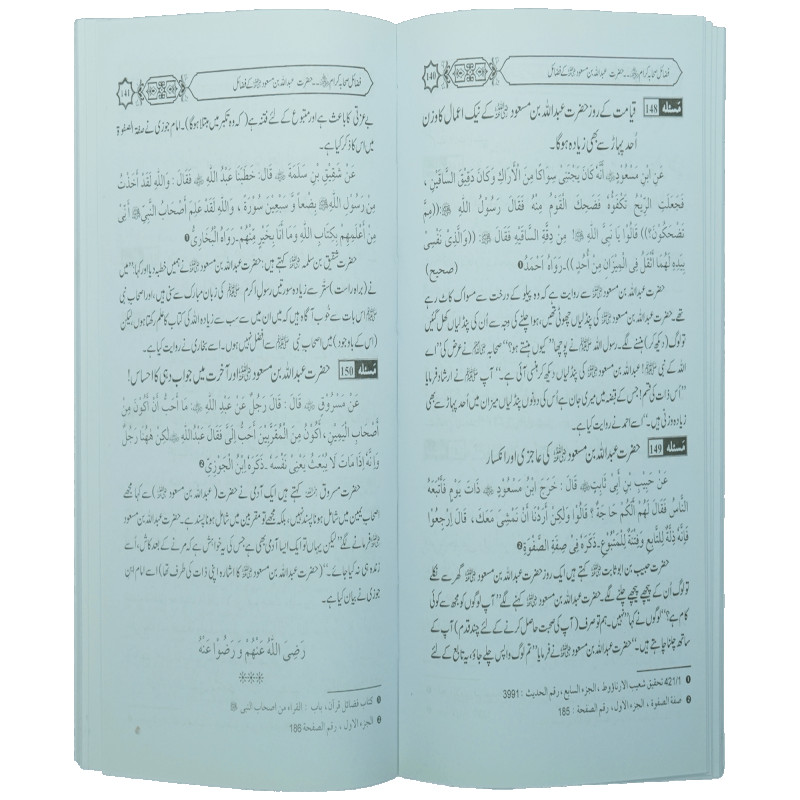 140 فضائل صحابہ کرام ﷢ ... حضرت عبداللہ بن مسعود ﷜ کے فضائل
مسئلہ 148 قیامت کے روز حضرت عبداللہ بن مسعود ﷜ کے نیک اعمال کا وزن
اُحد پہاڑ سے بھی زیادہ ہوگا۔
عَنِ ابْنِ مَسْعُودٍ ﷜ أَنَّهُ كَانَ يَجْتَنِي سِوَاكًا مِنَ الْأَرَاكِ وَكَانَ دَقِيقَ السَّاقَيْنِ ،
فَجَعَلَتِ الرِّيحُ تَكْفَؤُهُ فَضَحِكَ الْقَوْمُ مِنْهُ فَقَالَ رَسُولُ اللَّهِ ﷺ :((مِمَّ
تَضْحَكُونَ؟)) قَالُوا يَا نَبِيَّ اللَّهِ! مِنْ دِقَّةِ السَّاقَيْهِ فَقَالَ ﷺ: ((وَالَّذِي نَفْسِي
بِيَدِهِ لَهُمَا أَثْقَلُ فِي الْمِيزَانِ مِنْ أُحُدٍ ))۔ رَوَاهُ أَحْمَدُ ❶ (صحیح)
حضرت عبداللہ بن مسعود ﷜ سے روایت ہے کہ وہ پیلو کے درخت سے مسواک کاٹ رہے
تھے۔ حضرت عبداللہ بن مسعود ﷜ کی پنڈلیاں چھوٹی تھیں، ہوا چلنے کی وجہ سے اُن کی پنڈلیاں کھل گئیں
تو لوگ (دیکھ کر) ہنسنے لگے۔ رسول اللہ ﷺ نے پوچھا ”کیوں ہنستے ہو؟“ صحابہ ﷢ نے عرض کی ”اے
اللہ کے نبی ﷺ! حضرت عبداللہ بن مسعود ﷜ کی پنڈلیاں دیکھ کر ہنسی آئی ہے۔“ آپ ﷺ نے ارشاد فرمایا
”اُس ذات کی قسم! جس کے قبضہ میں میری جان ہے اُس کی دونوں پنڈلیاں میزان میں اُحد پہاڑ سے بھی
زیادہ وزنی ہیں۔“ اسے احمد نے روایت کیا ہے۔
مسئلہ 149 حضرت عبداللہ بن مسعود ﷜ کی عاجزی اور انکسار
عَنْ حَبِيبِ بْنِ أَبِي ثَابِتٍ قَالَ : خَرَجَ ابْنُ مَسْعُودٍ ﷜ ذَاتَ يَوْمٍ فَاتَّبَعَهُ
النَّاسُ فَقَالَ لَهُمْ أَلَكُمْ حَاجَةٌ ؟ قَالُوا وَلَكِنْ أَرَدْنَا أَنْ نَمْشِيَ مَعَكَ، قَالَ اِرْجِعُوا
فَإِنَّهُ ذِلَّةٌ لِلتَّابِعِ وَفِتْنَةٌ لِلْمَتْبُوعِ۔ ذَكَرَهُ فِي صِفَةِ الصَّفْوَةِ ❷
حضرت حبیب بن ابو ثابت کہتے ہیں ایک روز حضرت عبداللہ بن مسعود ﷜ گھر سے نکلے
تو لوگ اُن کے پیچھے پیچھے چلنے لگے۔ حضرت عبداللہ بن مسعود ﷜ کہنے لگے ”آپ لوگوں کو مجھ سے کوئی
کام ہے؟“ لوگوں نے کہا ”نہیں۔ ہم تو صرف (آپ کی صحبت حاصل کرنے کے لئے چند قدم) آپ کے
ساتھ چلنا چاہتے ہیں۔“ حضرت عبداللہ بن مسعود ﷜ نے فرمایا ”تم لوگ واپس چلے جاؤ، یہ تابع کے لئے
❶ 421/1 تحقیق شعیب الارناؤوط ، الجزء السابع، رقم الحدیث : 3991
❷ صفة الصفوة ، الجزء الاول، رقم الصفحة : 185
141 فضائل صحابہ کرام ﷢ ... حضرت عبداللہ بن مسعود ﷜ کے فضائل
بے عزتی کا باعث ہے اور متبوع کے لئے فتنہ ہے ( کہ وہ تکبر میں مبتلا ہوگا)۔ امام جوزی نے صفة الصفوة
میں اس کا ذکر کیا ہے۔
عَنْ شَقِيقِ بْنِ سَلَمَةَ قَالَ: خَطَبَنَا عَبْدُ اللَّهِ ﷜ فَقَالَ : وَاللَّهِ لَقَدْ أَخَذْتُ
مِنْ رَسُولِ اللَّهِ ﷺ بِضْعًا وَّ سَبْعِينَ سُورَةً ، وَاللَّهِ لَقَدْ عَلِمَ أَصْحَابُ النَّبِيِّ ﷺ أَنِّي
مِنْ أَعْلَمِهِمْ بِكِتَابِ اللَّهِ وَمَا أَنَا بِخَيْرِهِمْ۔ رَوَاهُ الْبُخَارِيُّ ❶
حضرت شقیق بن سلمہ کہتے ہیں: حضرت عبداللہ بن مسعود ﷜ نے ہمیں خطبہ دیا اور کہا ”میں
نے (براہ راست) ستر سے زیادہ سورتیں رسول اکرم ﷺ کی زبان مبارک سے سنی ہیں، اور اصحاب نبی
ﷺ اس بات سے خُوب آگاہ ہیں کہ میں ان میں سے سب سے زیادہ اللہ کی کتاب کا علم رکھتا ہوں، لیکن
(اس کے باوجود) میں اصحاب نبی ﷺ سے افضل نہیں ہوں۔ اسے بخاری نے روایت کیا ہے۔
مسئلہ 150 حضرت عبداللہ بن مسعود ﷜ اور آخرت میں جواب دہی کا احساس!
عَنْ مَسْرُوقٍ قَالَ : قَالَ رَجُلٌ عَنْ عَبْدِ اللَّهِ ﷜: مَا أُحِبُّ أَنْ أَكُونَ مِنْ
أَصْحَابِ الْيَمِينِ ، أَكُونُ مِنَ الْمُقَرَّبِينَ أَحَبُّ إِلَيَّ فَقَالَ عَبْدُاللَّهِ ﷜ لَكِنْ هَهُنَا رَجُلٌ
وَإِنَّهُ إِذَا مَاتَ لَا يُبْعَثُ يَعْنِي نَفْسَهُ۔ ذَكَرَهُ ابْنُ الْجَوْزِيِّ ❷
حضرت مسروق کہتے ہیں ایک آدمی نے حضرت (عبداللہ بن مسعود ﷜) سے کہا مجھے
اصحاب الیمین میں شامل ہونا پسند نہیں، بلکہ مجھے تو مقربین میں شامل ہونا پسند ہے۔ حضرت عبداللہ بن مسعود
﷜ فرمانے لگے ”لیکن یہاں تو ایک ایسا آدمی بھی ہے جس کی یہ خواہش ہے کہ مرنے کے بعد کاش، اُسے
زندہ ہی نہ کیا جائے۔“ (حضرت عبداللہ بن مسعود ﷜ کا اشارہ اپنی ذات کی طرف تھا) اسے امام ابن
جوزی نے بیان کیا ہے۔
رَضِيَ اللَّهُ عَنْهُمْ وَ رَضُوْا عَنْهُ
❶ کتاب فضائل قرآن ، باب : القراء من اصحاب النبی ﷺ
❷ الجزء الاول ، رقم الصفحة 186